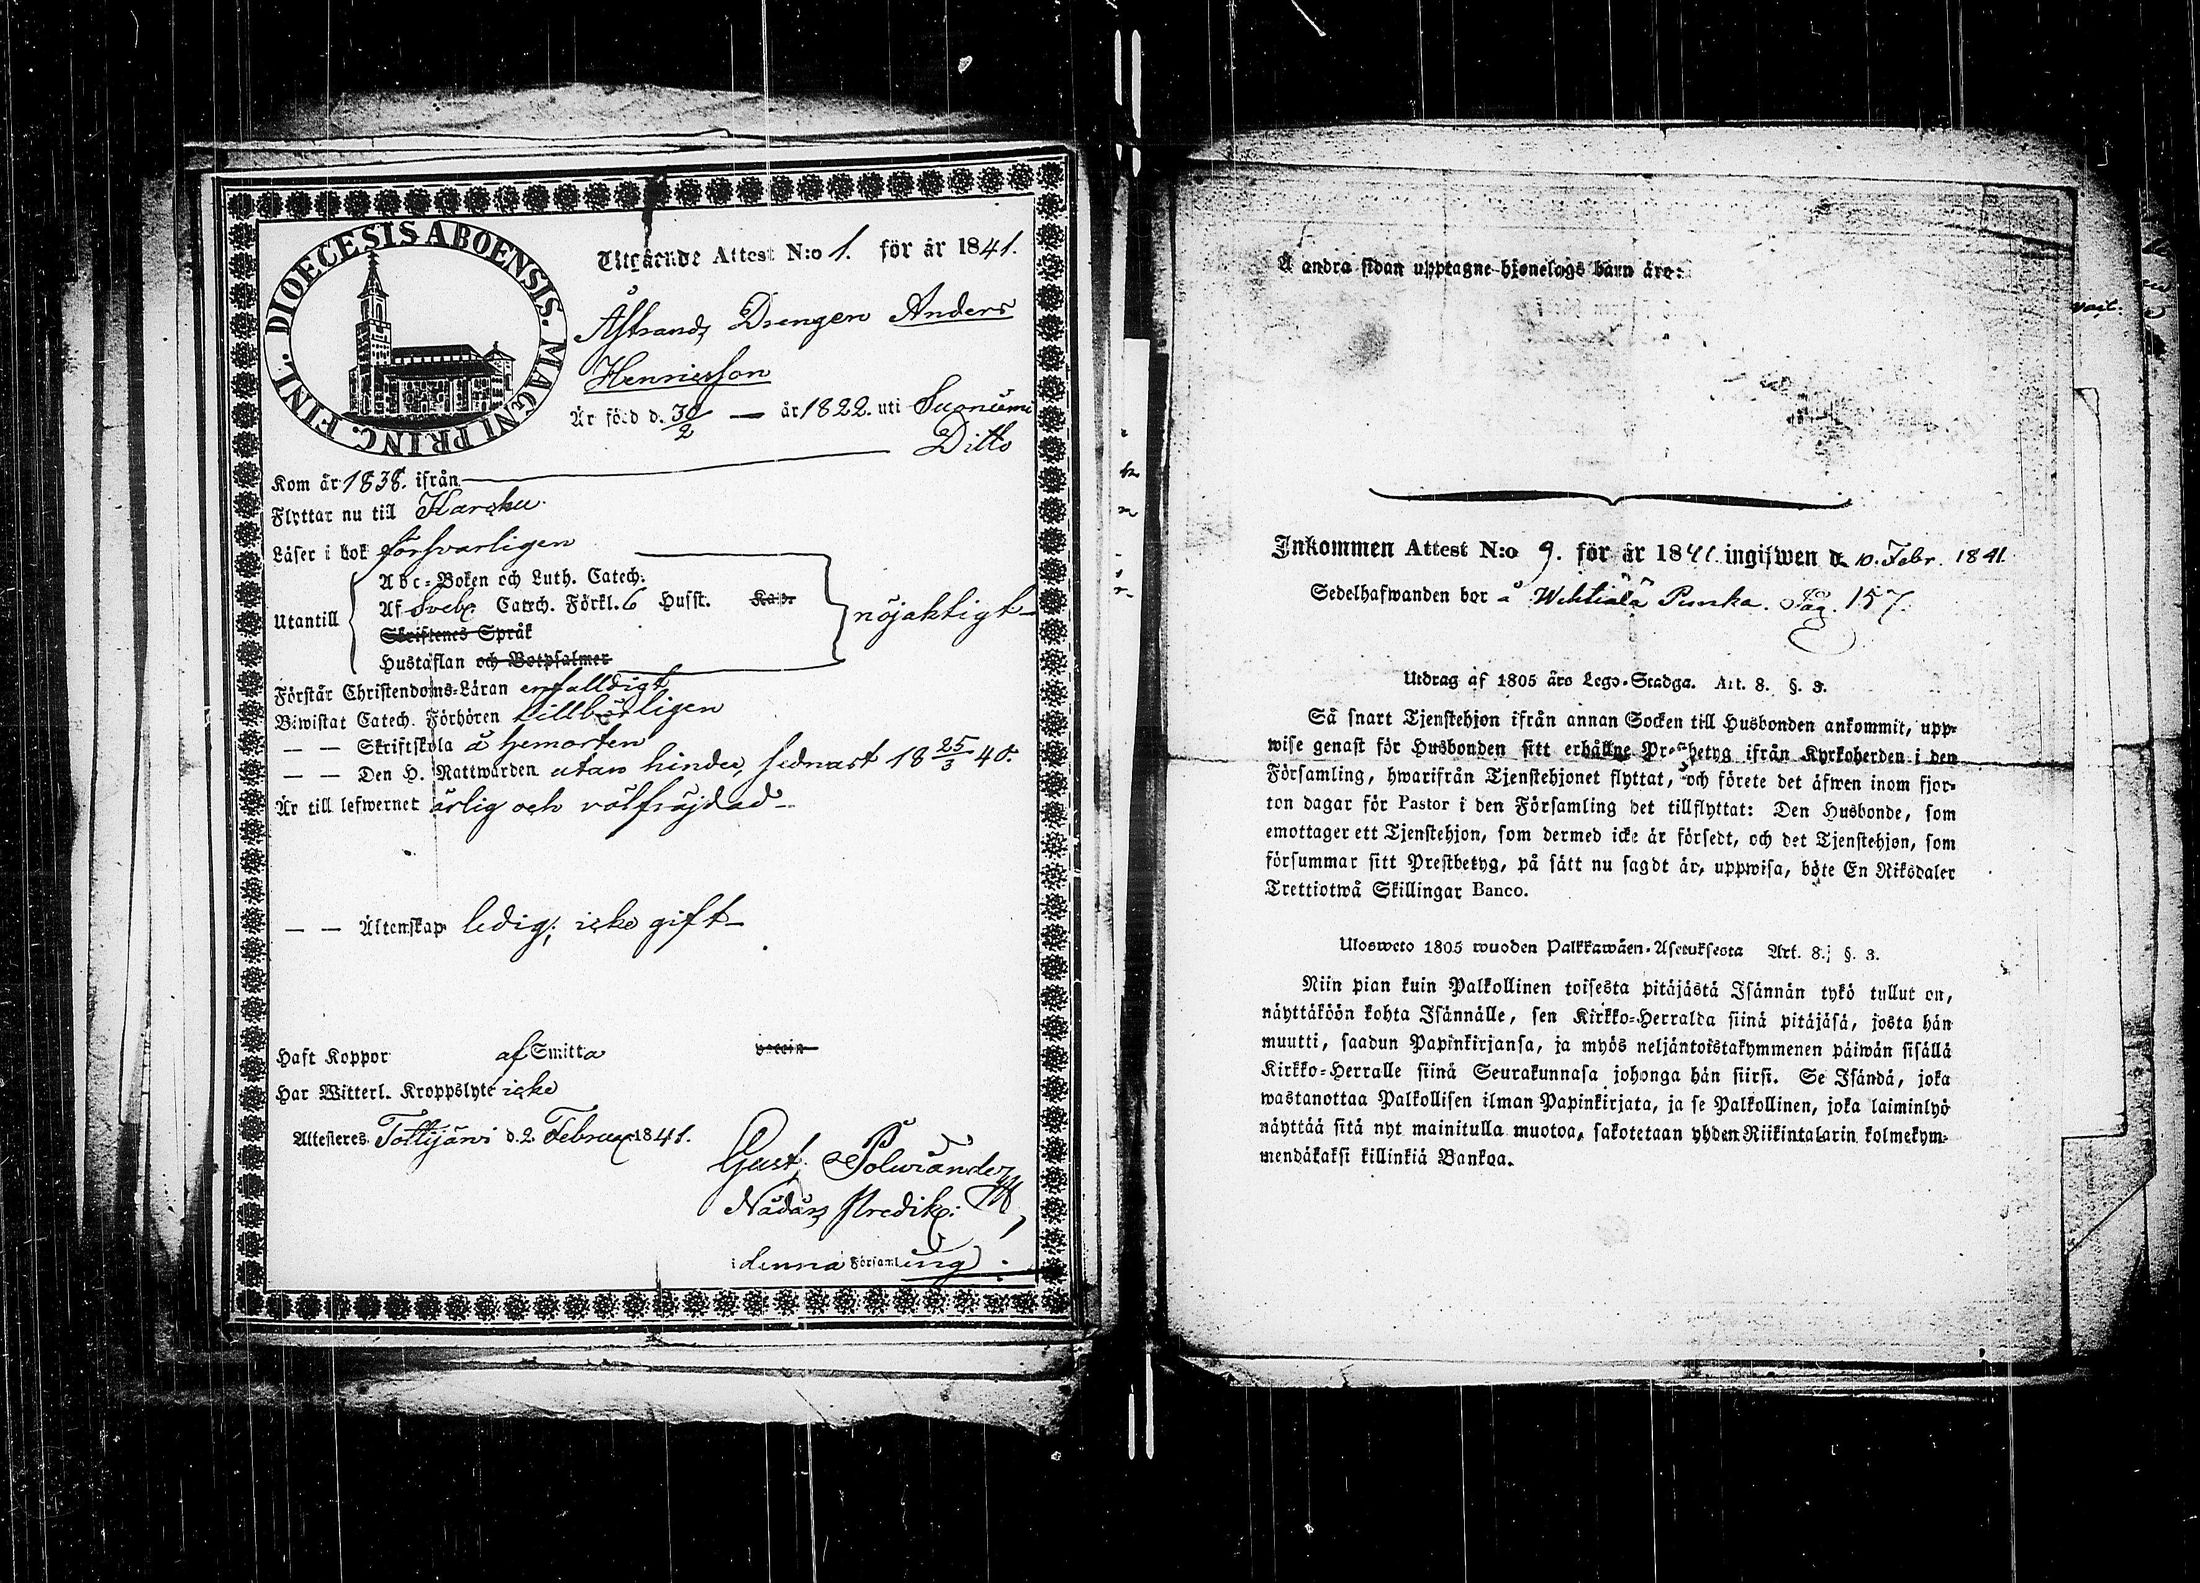 DIOECESIS ABOENSIS. MAGNI PRINC. FINL.
Utgående Attest N:o 1. för år 1841.
Åstrands Drengen Anders
Henricsson
Är född d. 30/2 — år 1822. uti Suoniemi
Kom år 1838. ifrån Ditto
Flyttar nu till Karcku.
Läser i bok försvarligen
Utantill
Abc-Boken och Luth. Catech.
Af Sveb. Catech. Förkl. 6 Husst. Kap.
Skriftenes Språk
Hustaflan och Botpsalmer
nöjaktigt
Förstår Christendoms-Läran enfalldigt
Biwistat Catech. Förhören tillbörligen
— — Skriftskola å hemorten
— — Den H. Nattwarden utan hinder, sednast 18 25/3 40.
Är till lefwernet ärlig och välfräjdad
— — Äktenskap ledig; icke gift
Haft Koppor af Smitta vaccin
Har Witterl. Kroppslyte icke
Attesteres Tottijärvi d. 2 Februar 1841.
Gust. Polviander
Nådårs Predik:
i denna Församling
Å andra sidan upptagne hjonelags barn äro:
Inkommen Attest N:o 9. för år 1841 ingifwen d. 10. Febr. 1841.
Sedelhafwanden bor å Wehtiälä Punka. Pag. 157.
Utdrag af 1805 års Lego-Stadga. Art. 8. §. 3.
Så snart Tjenstehjon ifrån annan Socken till Husbonden ankommit, upp-
wise genast för Husbonden sitt erhållne Prestbetyg ifrån Kyrkoherden i den
Församling, hwarifrån Tjenstehjonet flyttat, och förete det äfwen inom fjor-
ton dagar för Pastor i den Församling det tillflyttat: Den Husbonde, som
emottager ett Tjenstehjon, som dermed icke är försedt, och det Tjenstehjon, som
försummar sitt Prestbetyg, på sätt nu sagdt är, uppwisa, böte En Riksdaler
Trettiotwå Skillingar Banco.
Ulosweto 1805 wuoden Palkkawäen-Asetuksesta Art. 8. §. 3.
Niin pian kuin Palkollinen toisesta pitäjästä Isännän tykö tullut on,
näyttäköön kohta Isännälle, sen Kirkko-Herralda siinä pitäjäsä, josta hän
muutti, saadun Papinkirjansa, ja myös neljäntoistakymmenen päiwän sisällä
Kirkko-Herralle siinä Seurakunnasa johonga hän siirsi. Se Isändä, joka
wastanottaa Palkollisen ilman Papinkirjata, ja se Palkollinen, joka laiminlyö
näyttää sitä nyt mainitulla muotoa, sakotetaan yhden Riikintalarin kolmekym-
mendäkaksi killinkiä Bankoa.